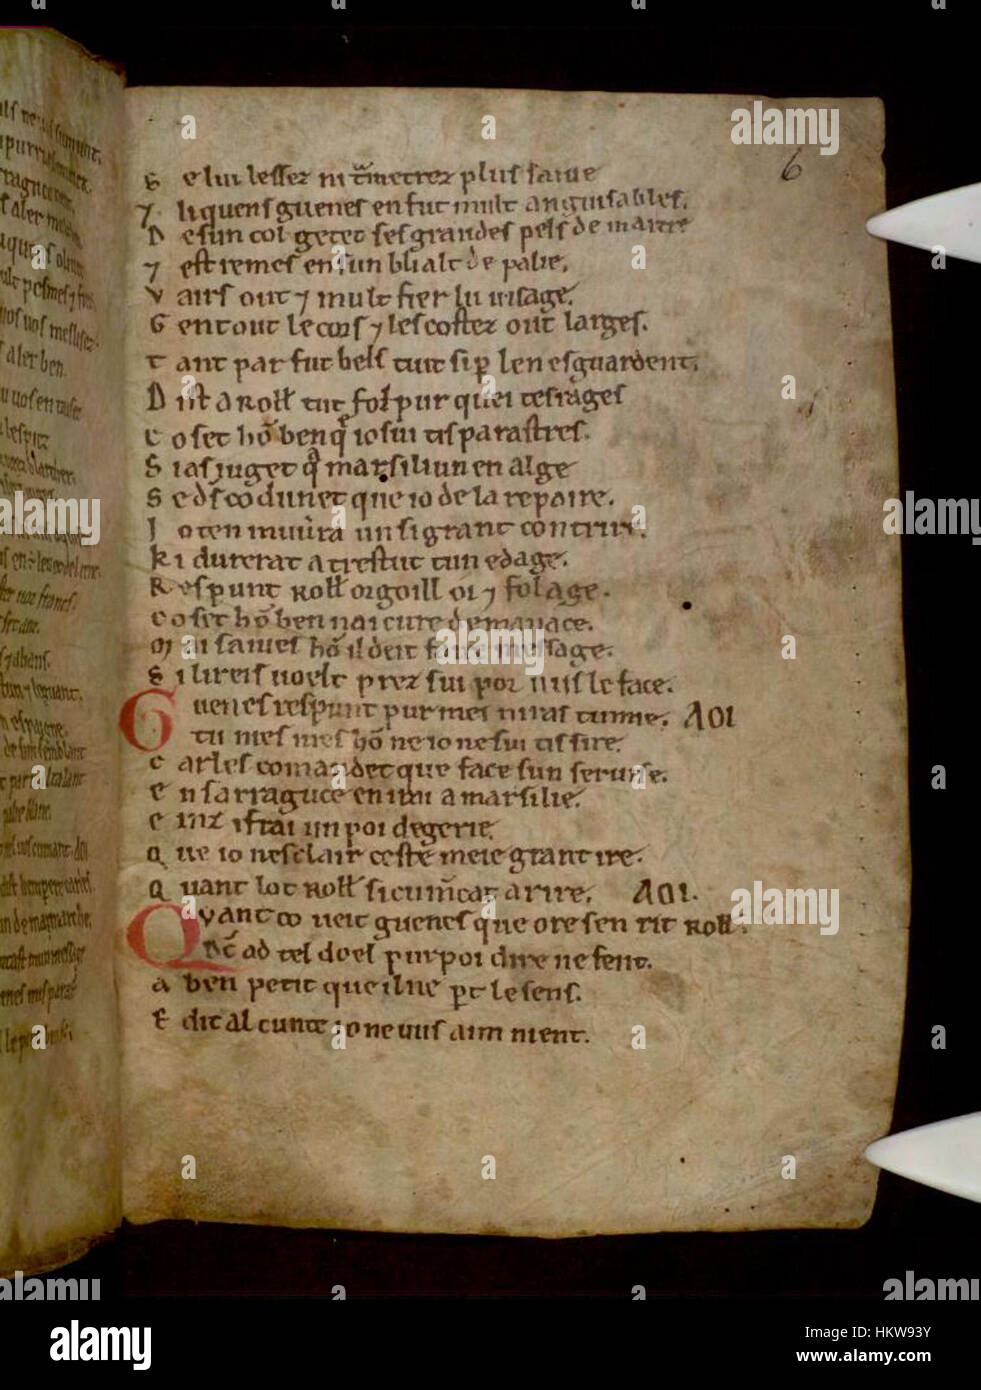 6
S e lui lessez ni tmetrez plus saiue
7 li quens guenes en fut mult anguisables.
D e sun col getet ses grandes pels de martre
7 est remes en sun blialt de palie.
V airs out 7 mult fier lu uisage.
G ent out le cors 7 les costez out larges.
T ant par fut bels tuit si per len esguardent.
D ist a Roll tut fol pur quei tesrages
C o set hom ben que io sui tis parastres.
S i as juget que a marsiliun en alge
S e ds co dunet que io de la repaire.
J o ten muura un si grant contrire.
K i durerat a trestut tun edage.
R espunt Roll orgoill oi 7 folage.
C o set hom ben nai cure de manace.
M ai saiues hom il deit faire message.
S i li reis uoelt prez sui por uus le face.
Guenes respunt pur mei niras tu mie. AOI
tu nies mes hom ne io ne sui tis sire.
C arles comandet que face sun seruise.
E n sarraguce en irai a marsilie.
E inz i frai un poi de gerie
Q ue io nesclair ceste meie grant ire.
Q uant lot Roll si cumencat a rire. AOI.
Quant co ueit guenes que ore sen rit Roll.
Dc ad tel doel pur poi dire ne fent.
A ben petit que il ne pert le sens.
E dit al cunte io ne uus aim nient.
a alamy
alamy
Image ID: HKW93Y
www.alamy.com